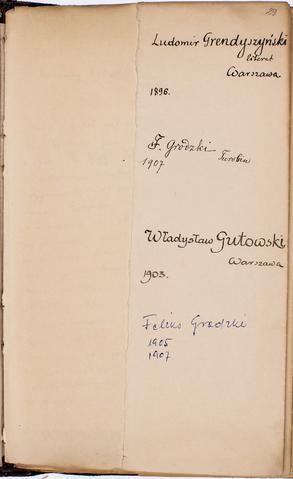 Ludomir Grendyszyński
literat
Warszawa
1896.
F. Grodzki
1907 Turobin
Władysław Gutowski
Warszawa
1903.
Feliks Grodzki
1905
1907